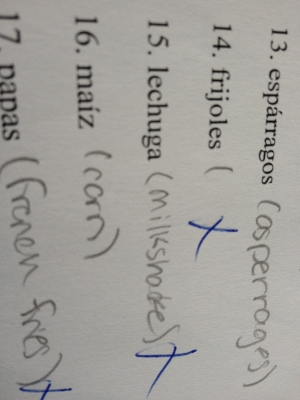 13. espárragos (asperrages)
14. frijoles ( X
15. lechuga (milkshake) X
16. maíz (corn)
17. papas (french fries) X